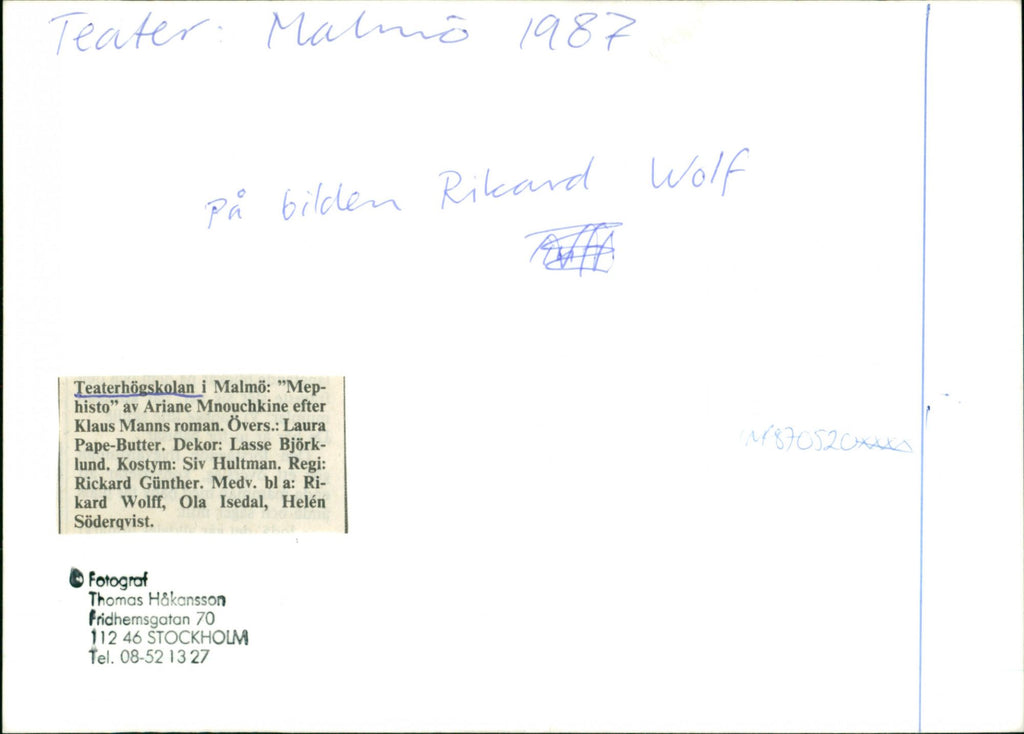 Teater: Malmö 1987
på bilden Rikard Wolf
Teaterhögskolan i Malmö: ”Mep-
histo” av Ariane Mnouchkine efter
Klaus Manns roman. Övers.: Laura
Pape-Butter. Dekor: Lasse Björk-
lund. Kostym: Siv Hultman. Regi:
Rickard Günther. Medv. bl a: Ri-
kard Wolff, Ola Isedal, Helén
Söderqvist.
Fotograf
Thomas Håkansson
Fridhemsgatan 70
112 46 STOCKHOLM
Tel. 08-52 13 27